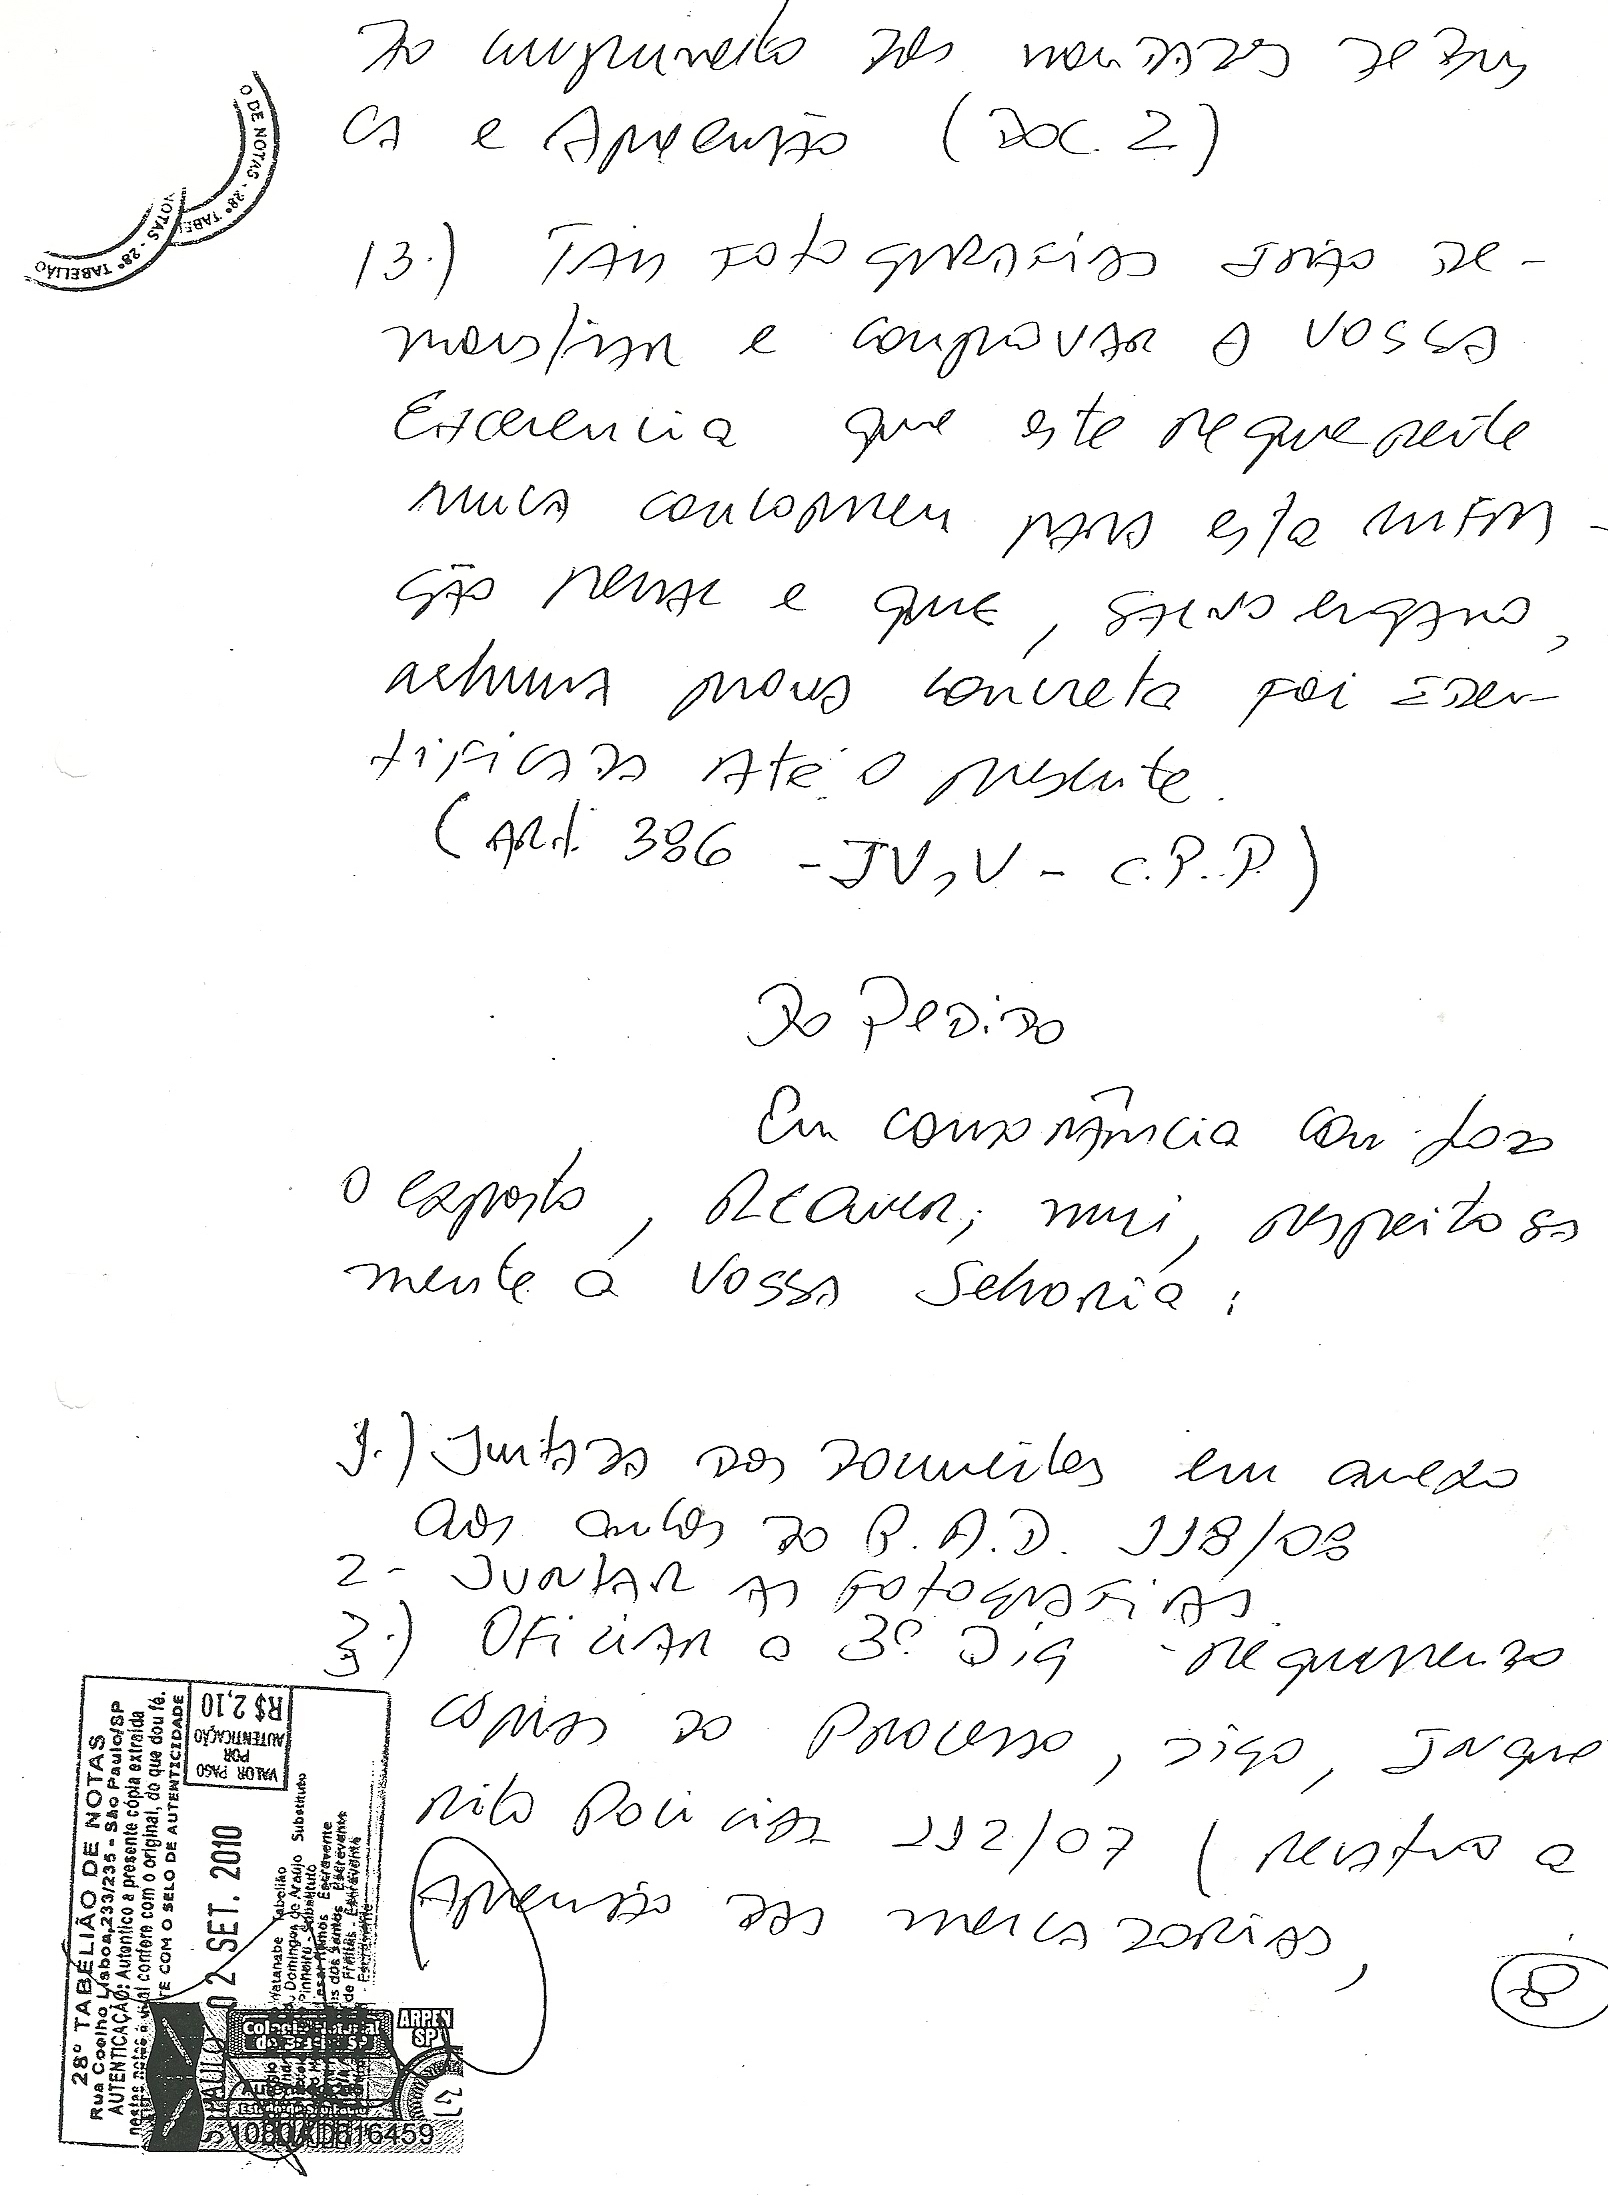 do cumprimento dos mandados de bus
ca e Apreensão (DOC. 2)
13.) TAis fotografias irão de-
monstrar e comprovar a vossa
Excelencia que este requerente
nunca concorreu para esta infra-
ção penal e que, salvo engano,
nenhuma prova concreta foi iden-
tificada Até o presente.
(Art. 386 - IV, V - C.P.P)
Do Pedido
Em consonância com todo
o exposto, Requer; mui, respeitosa
mente a Vossa Senhoria:
1.) Juntada dos documentos em anexo
aos autos do P.A.D. 118/08
2- JUNTAR AS FOTOGRAFIAS
3.) OFICIAR a 3º. Dig - requerendo
copias do Processo, digo, Inque
rito Policial 112/07 (relativo a
Apreensão das mercadorias,
8
O DE NOTAS - 28º TABEL
NOTAS - 28º TABELIÃO
28º TABELIÃO DE NOTAS
Rua Coelho Lisboa, 233/235 - São Paulo/SP
AUTENTICAÇÃO: Autentico a presente cópia extraída
nestas notas a qual confere com o original, do que dou fé.
TE COM O SELO DE AUTENTICIDADE
VALOR PAGO
POR
AUTENTICAÇÃO
R$ 2,10
02 SET. 2010
PAULO
Watanabe Tabelião
Domingos de Araujo Substituto
Pinheiro - Substituto
Escrevente
dos Santos Escrevente
de Freitas - Escrevente
Colégio Notarial
do Brasil - SP
ARPEN
SP
1080AD616459